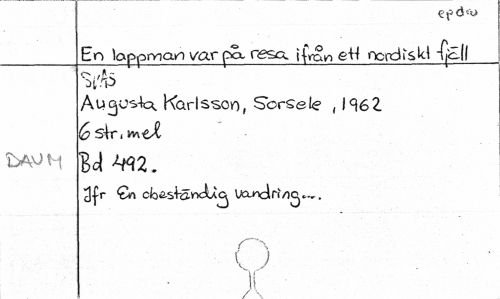 epdw
En lappman var på resa ifrån ett nordiskt fjäll
SVÅS
Augusta Karlsson, Sorsele, 1962
6 str. mel
DAUM Bd 492.
Jfr En obeständig vandring....